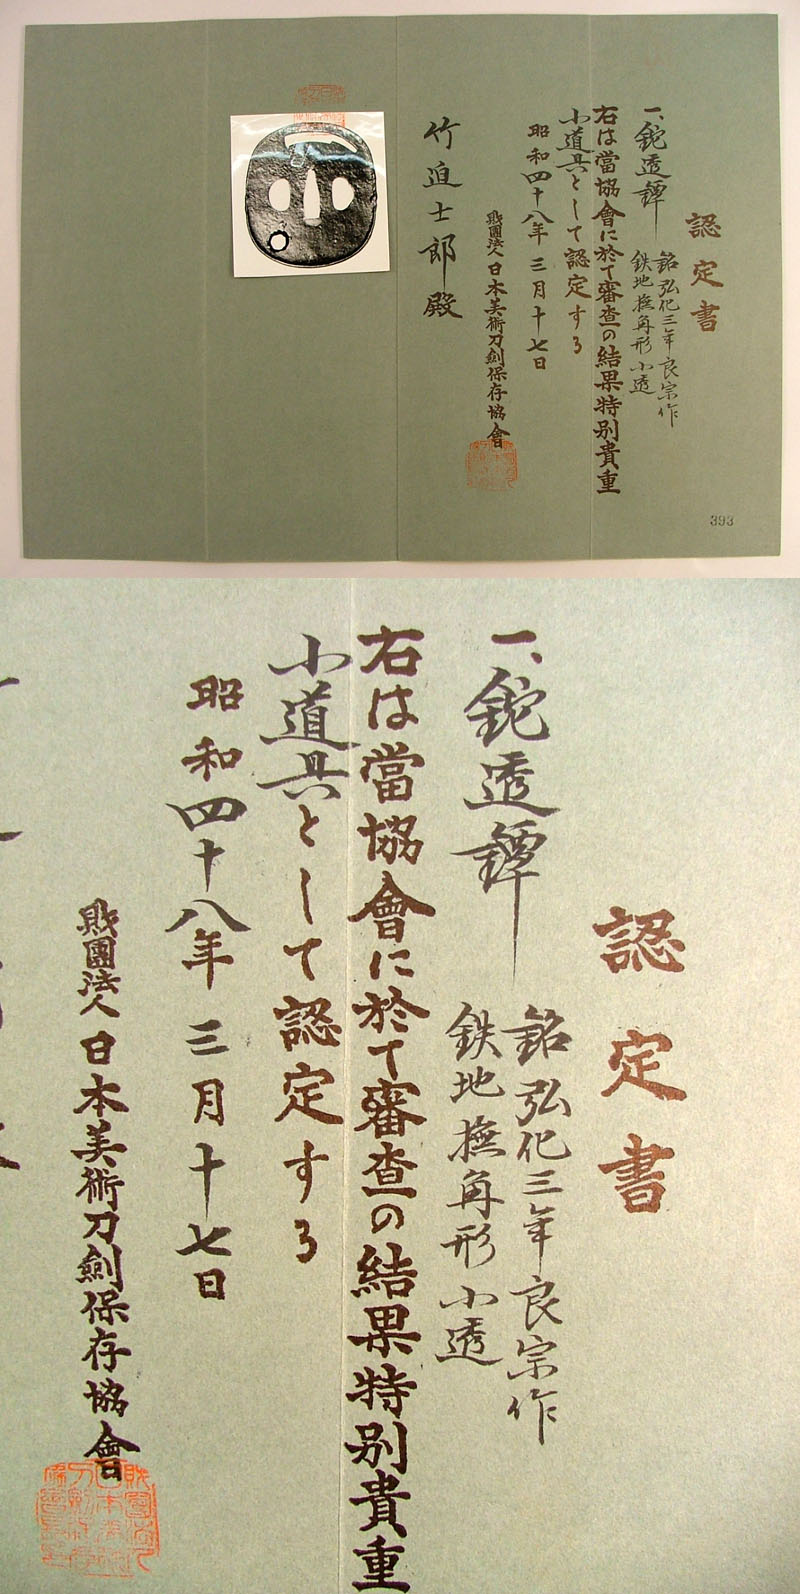 認定書
一、鉈透鐔
銘 弘化三年良宗作
鉄地撫角形小透
右は當協會に於て審査の結果特別貴重
小道具として認定する
昭和四十八年三月十七日
財團法人日本美術刀劍保存協會
竹迫士郎殿
393
認定書
一、鉈透鐔
銘 弘化三年良宗作
鉄地撫角形小透
右は當協會に於て審査の結果特別貴重
小道具として認定する
昭和四十八年三月十七日
財團法人日本美術刀劍保存協會